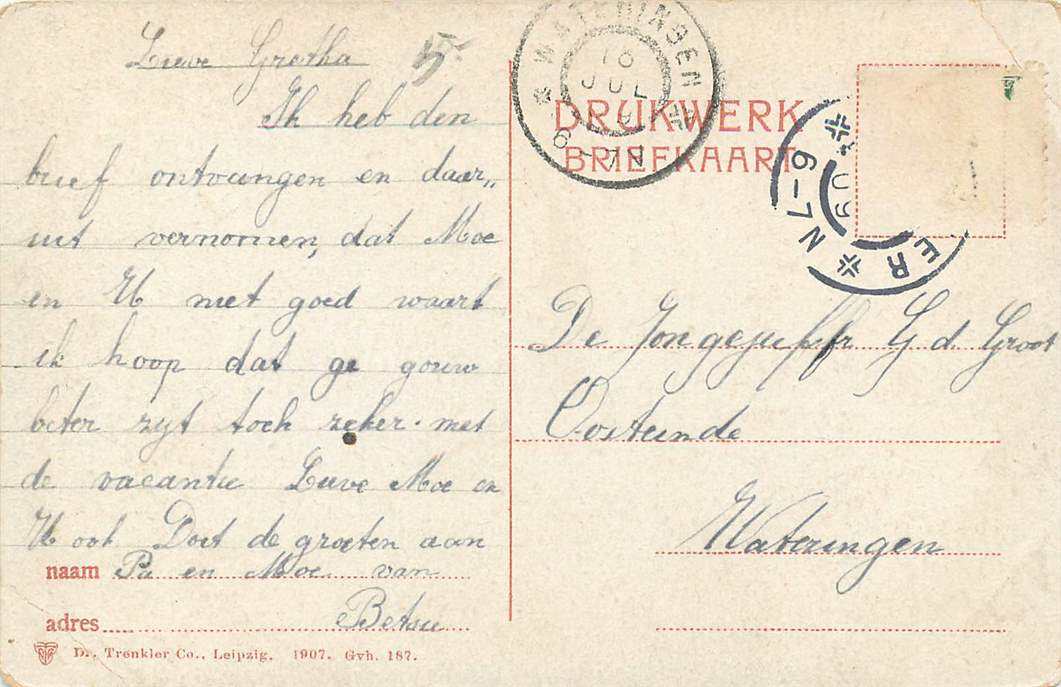 Lieve Gretha
Ik heb den
brief ontvangen en daar„
uit vernomen, dat Moe
en U niet goed waart
ik hoop dat ge gouw
beter zijt toch zeker. met
de vacantie Lieve Moe en
U ook Doet de groeten aan
naam Pa en Moe van
adres Betsie
Dr. Trenkler Co., Leipzig. 1907. Gvh. 187.
WATERINGEN
16
JUL
6-7N
DRUKWERK
BRIEFKAART
ER
09
6-7N
De Jongejuffr G d. Groot
Oosteinde
Wateringen